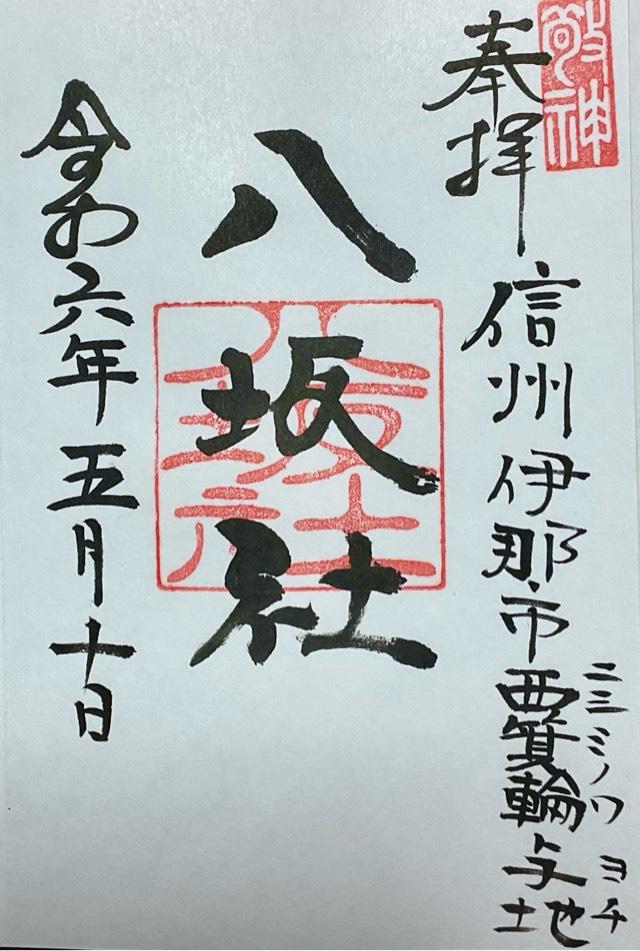 敬神
奉拝
信州伊那市西箕輪与地
ニシミノワ ヨチ
八坂社
八坂社
令和六年五月十日